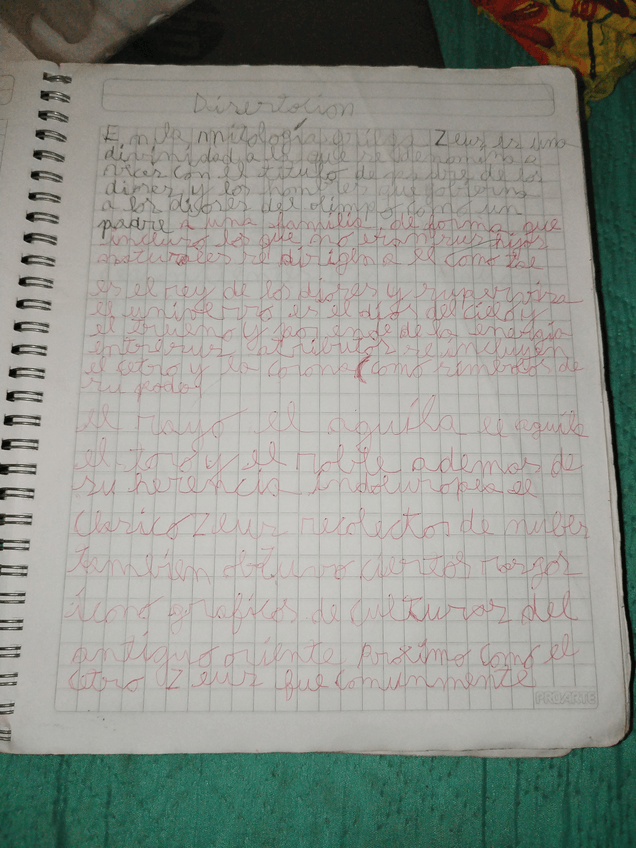 Disertacion
En la mitología griega Zeus es una
divinidad a la que se denomina a
veces con el titulo de padre de los
dioses y los hombres que gobierna
a los dioses del olimpo como un
padre a una familia, de forma que
incluso los que no eran sus hijos
naturales se dirigen a el como tal
es el rey de los dioses y supervisa
el universo es el dios del cielo y
el trueno y por ende de la energia
entre sus atributos se incluyen
el cetro y la corona (como simbolos de
su poder)
el rayo el aguila el aguila
el toro y el roble ademas de
su herencia indoeuropea el
clasico Zeus recolectos de nubes
tambien obtuvo ciertos rasgos
icono graficos de culturas del
antiguo oriente proximo como el
cetro Zeus fue comunmente
PROARTE